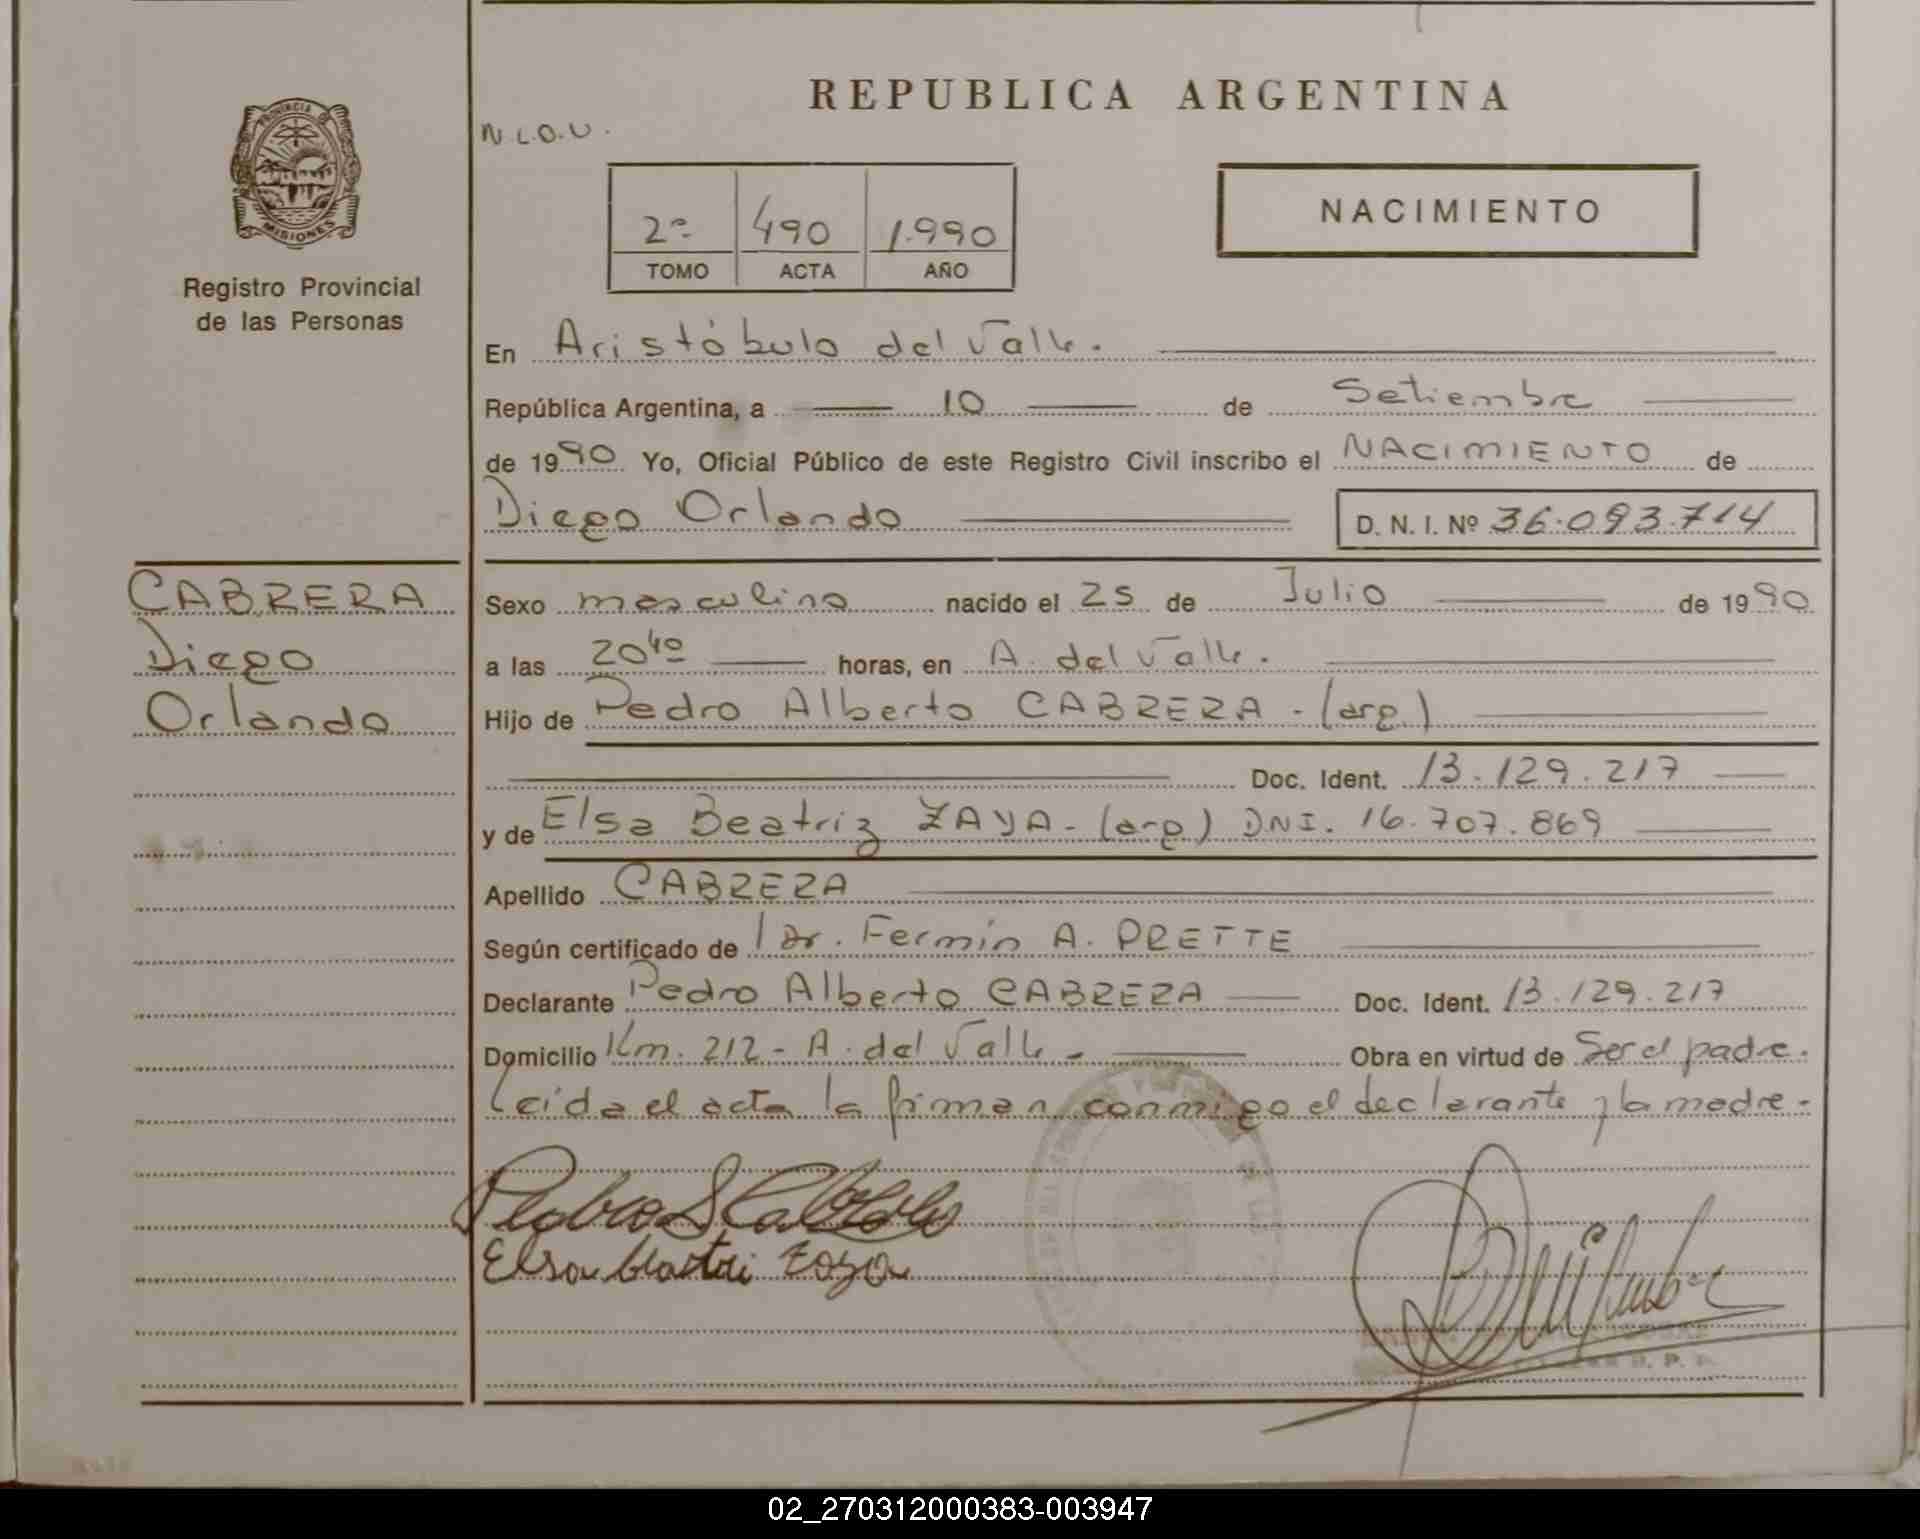 REPUBLICA ARGENTINA
N.L.O.U.
PROVINCIA DE MISIONES
Registro Provincial
de las Personas
2º 490 1.990
TOMO ACTA AÑO
NACIMIENTO
En Aristóbulo del Valle.
República Argentina, a 10 de Setiembre
de 1990 Yo, Oficial Público de este Registro Civil inscribo el NACIMIENTO de
Diego Orlando D. N. I. Nº 36.093.714
CABRERA
Diego
Orlando
Sexo masculino nacido el 25 de Julio de 1990
a las 20⁴⁰ horas, en A. del Valle.
Hijo de Pedro Alberto CABRERA - (arg.)
Doc. Ident. 13.129.217
y de Elsa Beatriz ZAYA - (arg) DNI. 16.707.869
Apellido CABRERA
Según certificado de Dr. Fermin A. PRETTE
Declarante Pedro Alberto CABRERA Doc. Ident. 13.129.217
Domicilio Km. 212 - A. del Valle - Obra en virtud de Ser el padre.
Leida el acta la firman conmigo el declarante y la madre -
Elsa Zaya
02_270312000383-003947